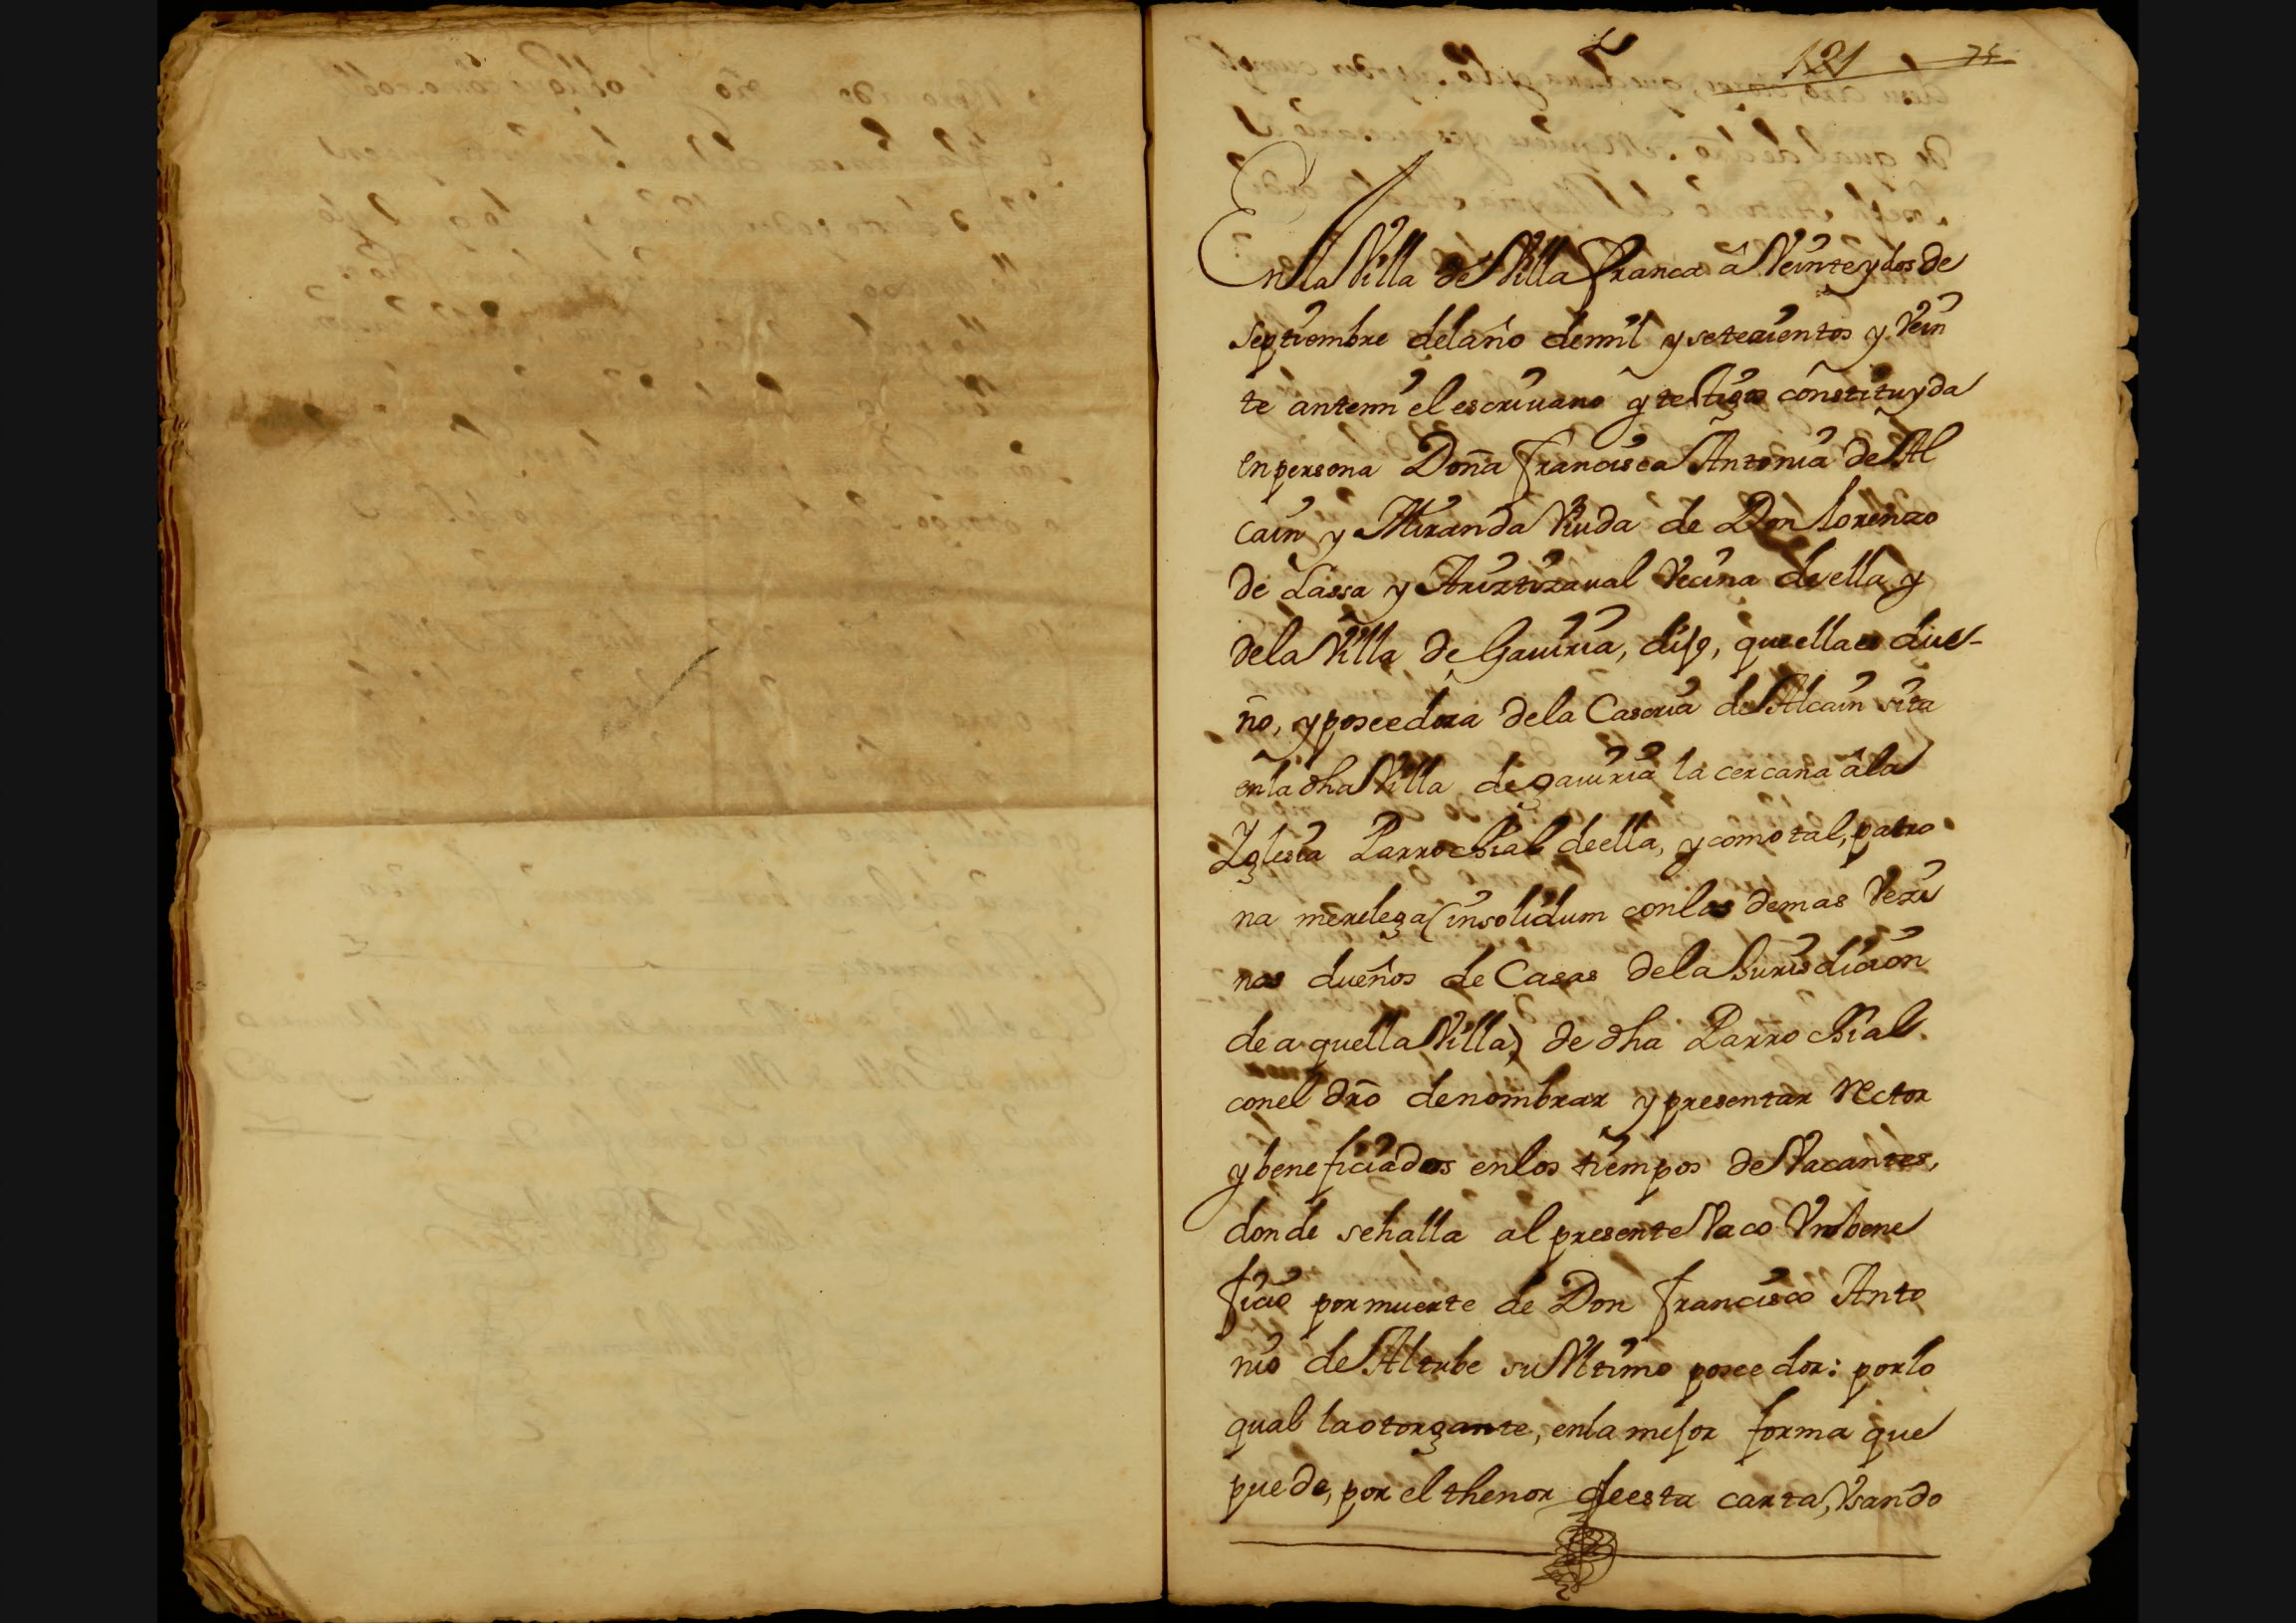 121
En la Villa de Villa Franca â Veinte y dos de
Septiembre del año de mil y setecientos y Vein
te ante mi el escriuano y testigos constituyda
en persona Doña Francisca Antonia de Al
cain y Miranda Viuda de Don Lorenzo
de Lassa y Ariztizaual Vecina de ella y
de la Villa de Gauiria, dijo, que ella es due-
ño, y poseedora de la Caseria de Alcain sita
en la dha Villa de gauiria la cercana â la
Yglesia Parrochial de ella, y como tal, patro
na merelega (insolidum con los demas Vezi
nos dueños de Casas de la Jurisdicion
de aquella Villa) de dha Parrochial
con el dro de nombrar y presentar rector
y beneficiados en los tiempos de Vacantes,
donde se halla al presente Vaco Vn bene
ficio por muerte de Don Francisco Anto
nio de Altube su Vltimo poseedor: por lo
qual la otorgante, en la mejor forma que
puede, por el thenor de esta carta, Vsando